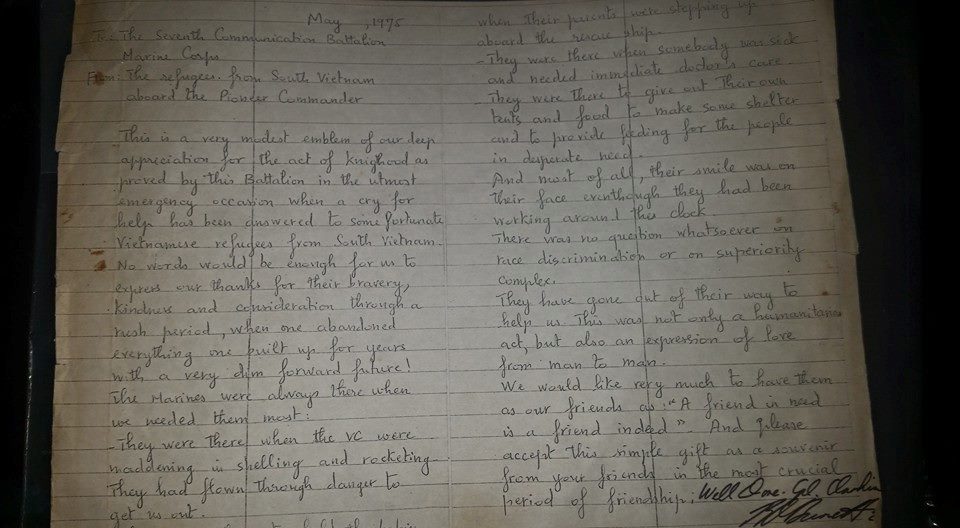 May, 1975
To: The Seventh Communication Battalion
Marine Corps
From: The refugees from South Vietnam
aboard the Pioneer Commander
This is a very modest emblem of our deep
appreciation for the act of Knighood as
proved by this Battalion in the utmost
emergency occasion when a cry for
help has been answered to some fortunate
Vietnamese refugees from South Vietnam.
No words would be enough for us to
express our thanks for their bravery,
kindness and consideration through a
rush period, when one abandoned
everything one built up for years
with a very dim forward future!
The Marines were always there when
we needed them most:
- They were there when the VC were
maddening in shelling and rocketing.
They had flown through danger to
get us out.
when their parents were stepping up
aboard the rescue ship.
- They were there when somebody was sick
and needed immediate doctor's care.
- They were there to give out their own
tents and food to make some shelter
and to provide feeding for the people
in desperate need.
And most of all, their smile was on
their face eventhough they had been
working around the clock.
There was no question whatsoever on
race discrimination or on superiority
complex.
They have gone out of their way to
help us. This was not only a humanitarian
act, but also an expression of love
from man to man.
We would like very much to have them
as our friends as: "A friend in need
is a friend indeed". And please
accept this simple gift as a souvenir
from your friends in the most crucial
period of friendship;
Well Done.